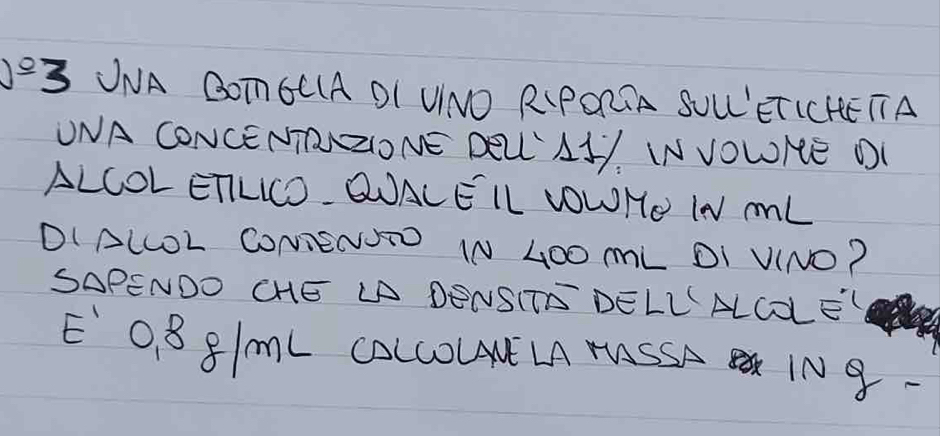 N°3 UNA BOTTIGLIA DI VINO RIPORTA SULL'ETICHETTA
UNA CONCENTRAZIONE DELL'11% IN VOLUME DI
ALCOL ETILICO. QUAL È IL VOLUME IN mL
DI ALCOL CONTENUTO IN 400 mL DI VINO?
SAPENDO CHE LA DENSITÀ DELL'ALCOL E'
E' 0,8 g/mL CALCOLARE LA MASSA IN g.